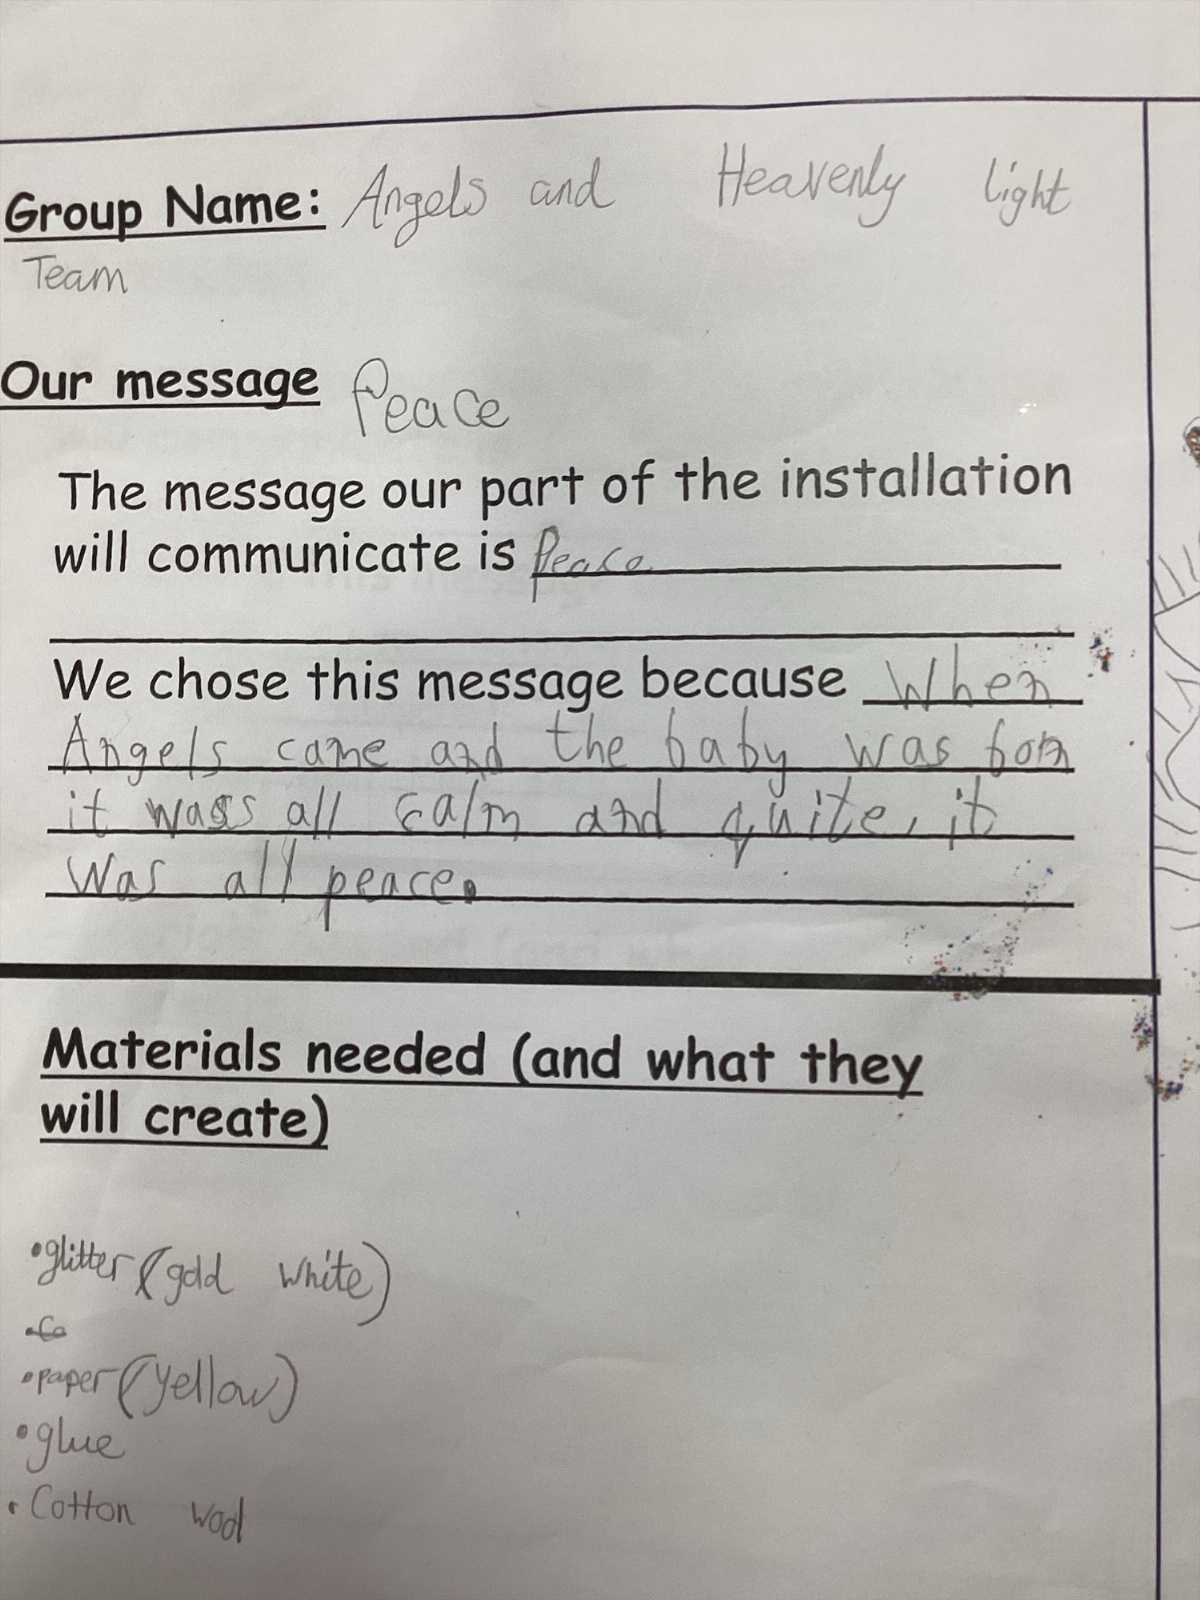 Group Name: Angels and Heavenly light
Team
Our message Peace
The message our part of the installation
will communicate is Peace
We chose this message because When
Angels came and the baby was born
it was all calm and quite, it
was all peace.
Materials needed (and what they
will create)
•glitter (gold white)
•Co
•paper (yellow)
•glue
•Cotton wool